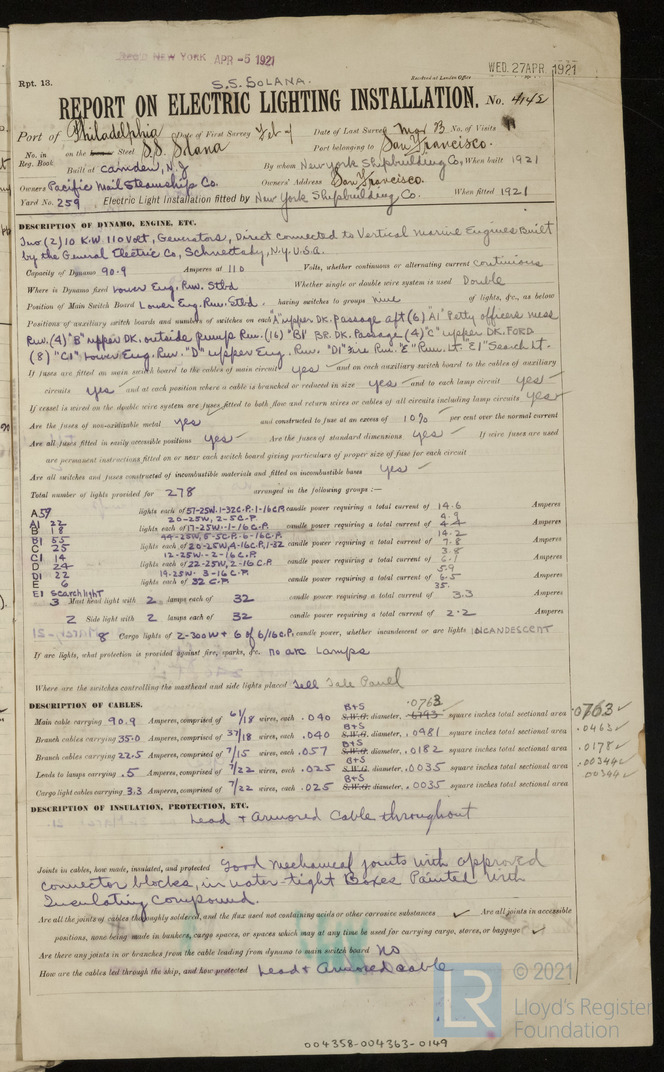 Rec'd NEW YORK APR -5 1921
WED. 27 APR. 1921
Rpt. 13.
S.S. SOLANA.
Received at London Office
REPORT ON ELECTRIC LIGHTING INSTALLATION. No. 4142
Port of Philadelphia Date of First Survey Feb 4 Date of Last Survey Mar 23 No. of Visits
No. in Reg. Book on the Steel S.S. Solana Port belonging to San Francisco.
Built at Camden, N.J By whom New York Shipbuilding Co, When built 1921
Owners Pacific Mail Steamship Co. Owners' Address San Francisco.
Yard No. 259 Electric Light Installation fitted by New York Shipbuilding Co. When fitted 1921
DESCRIPTION OF DYNAMO, ENGINE, ETC.
Two (2) 10 K.W. 110 Volt, Generators, Direct connected to Vertical Marine Engines Built
by the General Electric Co, Schnectady, N.Y. U.S.A.
Capacity of Dynamo 90.9 Amperes at 110 Volts, whether continuous or alternating current Continious
Where is Dynamo fixed Lower Eng. Rm. Stbd Whether single or double wire system is used Double
Position of Main Switch Board Lower Eng. Rm. Stbd. having switches to groups nine of lights, &c., as below
Positions of auxiliary switch boards and numbers of switches on each "A" upper DK. Passage aft (6) A1" Petty officers mess
Rm. (4) "B" upper DK. outside pump Rm. (16) "B1" BR. DK. Passage (4) "C" upper DK. FORD
(8) "C1" Lower Eng. Rm. "D" upper Eng. Rm. "D1" Fire Rm. "E" Run. Lt. "E1" Search Lt.
If fuses are fitted on main switch board to the cables of main circuit yes and on each auxiliary switch board to the cables of auxiliary
circuits yes and at each position where a cable is branched or reduced in size yes and to each lamp circuit yes
If vessel is wired on the double wire system are fuses fitted to both flow and return wires or cables of all circuits including lamp circuits yes
Are the fuses of non-oxidizable metal yes and constructed to fuse at an excess of 10% per cent over the normal current
Are all fuses fitted in easily accessible positions yes Are the fuses of standard dimensions yes If wire fuses are used
are permanent instructions fitted on or near each switch board giving particulars of proper size of fuse for each circuit
Are all switches and fuses constructed of incombustible materials and fitted on incombustible bases yes
Total number of lights provided for 278 arranged in the following groups :—
A 59 lights each of 57-25W. 1-32 C.P. 1-16 C.P. candle power requiring a total current of 14.6 Amperes
A1 22 20-25W, 2-5 C.P. 4.9
B 18 lights each of 17-25W. 1-16 C.P. candle power requiring a total current of 4.4 Amperes
B1 55 44-25W, 5-5 C.P. 6-16 C.P. 14.2
C 25 lights each of 20-25W, 4-16 C.P, 1-32 candle power requiring a total current of 7.8 Amperes
C1 14 12-25W. - 2-16 C.P. 3.8
D 24 lights each of 22-25W, 2-16 C.P candle power requiring a total current of 6.1 Amperes
D1 22 19-25W. 3-16 C.P. 5.9
E 6 lights each of 32 C.P. candle power requiring a total current of 6.5 Amperes
E1 Searchlight 35.
3 Mast head light with 2 lamps each of 32 candle power requiring a total current of 3.3 Amperes
2 Side light with 2 lamps each of 32 candle power requiring a total current of 2.2 Amperes
8 Cargo lights of 2-300W & 6 of 6/16 C.P. candle power, whether incandescent or arc lights INCANDESCENT
If arc lights, what protection is provided against fire, sparks, &c. no arc Lamps
Where are the switches controlling the masthead and side lights placed Tell Tale Panel
DESCRIPTION OF CABLES.
Main cable carrying 90.9 Amperes, comprised of 61/18 wires, each .040 B+S S.W.G. diameter, .0763 square inches total sectional area .0763
Branch cables carrying 35.0 Amperes, comprised of 37/18 wires, each .040 B+S S.W.G. diameter, .0481 square inches total sectional area .0463
Branch cables carrying 22.5 Amperes, comprised of 7/15 wires, each .057 B+S S.W.G. diameter, .0182 square inches total sectional area .0178
Leads to lamps carrying .5 Amperes, comprised of 7/22 wires, each .025 B+S S.W.G. diameter, .0035 square inches total sectional area .00344
Cargo light cables carrying 3.3 Amperes, comprised of 7/22 wires, each .025 B+S S.W.G. diameter, .0035 square inches total sectional area .00344
DESCRIPTION OF INSULATION, PROTECTION, ETC.
Lead & Armored Cable throughout
Joints in cables, how made, insulated, and protected Good mechanical joints with approved
connector blocks, in water-tight Boxes Painted with
Insulating compound.
Are all the joints of cables thoroughly soldered, and the flux used not containing acids or other corrosive substances ✓ Are all joints in accessible
positions, none being made in bunkers, cargo spaces, or spaces which may at any time be used for carrying cargo, stores, or baggage ✓
Are there any joints in or branches from the cable leading from dynamo to main switch board No
How are the cables led through the ship, and how protected Lead & Armored cable
LR © 2021
Lloyd's Register
Foundation
004358-004363-0149